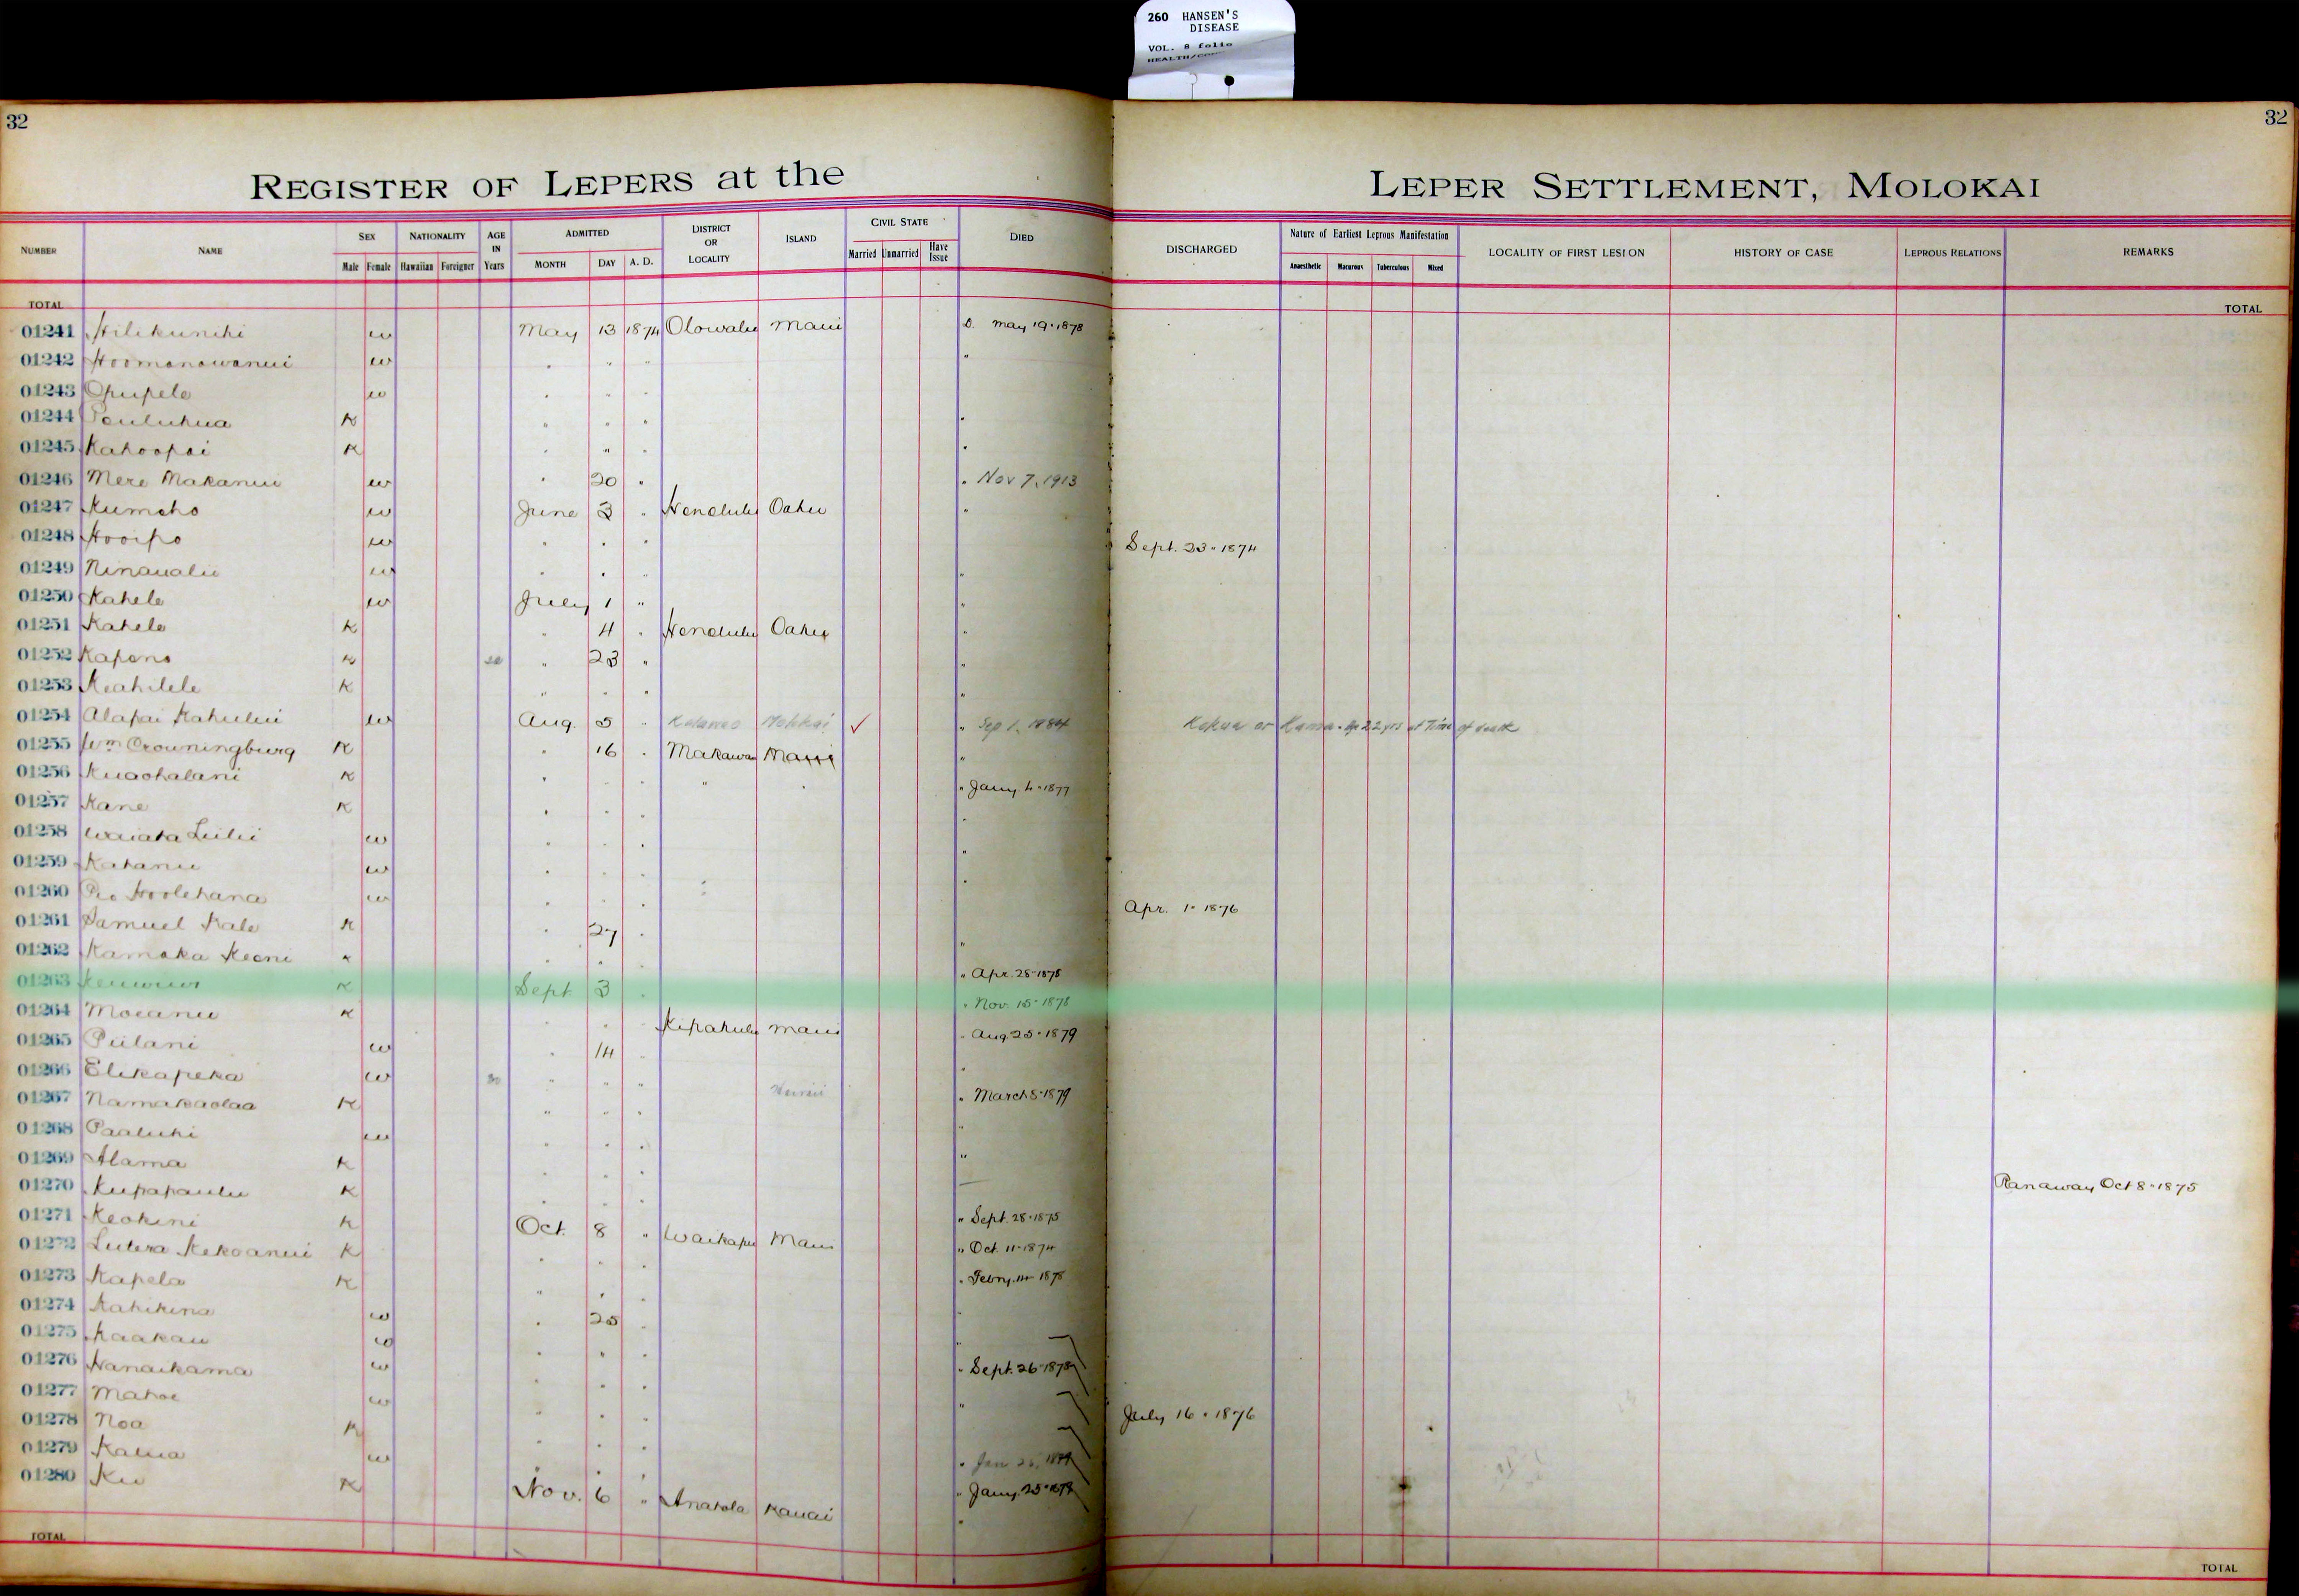 260 HANSEN'S
DISEASE
VOL. 8 folio
32
32
REGISTER OF LEPERS at the LEPER SETTLEMENT, MOLOKAI
NUMBER NAME SEX NATIONALITY AGE IN Years ADMITTED DISTRICT OR LOCALITY ISLAND CIVIL STATE DIED DISCHARGED Nature of Earliest Leprous Manifestation LOCALITY OF FIRST LESION HISTORY OF CASE LEPROUS RELATIONS REMARKS
Male Female Hawaiian Foreigner MONTH DAY A. D. Married Unmarried Have Issue Anaesthetic Macurous Tuberculous Mixed
TOTAL TOTAL
01241 Hilikunihi w May 13 1874 Olowalu Maui D. May 19 · 1878
01242 Hoomanawanui w " " " "
01243 Opupele w " " "
01244 Pauluhua K " " " "
01245 Kahoopai K " " " "
01246 Mere Makanui w " 20 " " Nov 7, 1913
01247 Kumeho w June 3 " Honolulu Oahu "
01248 Hooipo w " " " Sept. 23 · 1874
01249 Ninaualii w " " " "
01250 Kahele w July 1 " "
01251 Kahele K " 4 " Honolulu Oahu "
01252 Kapena K " 23 " "
01253 Keahilele K " " " "
01254 Alapai Kahului w Aug. 5 " Kalawao Molokai ✓ " Sep 1, 1884 Kokua or Kamaa. Age 22 yrs at Time of death
01255 Wm Crowningburg K " 16 " Makawao Maui "
01256 Kuaohalani K " " " " " " Jany. 4 · 1877
01257 Kane K " " " "
01258 Waiata Luilii w " " " "
01259 Kahanu w " " " "
01260 Hoolehana w " " " Apr. 1 · 1876
01261 Samuel Kale K " 27 " "
01262 Kamaka Keoni K " " " Apr. 28 · 1878
01263 K Sept 3 " " Nov. 15 · 1878
01264 Moeanu K " " " Kipahulu Maui " Aug 25 · 1879
01265 Piilani w " 14 " "
01266 Elikapeka w 30 " " " Hawaii " March 8 · 1879
01267 Namakaolaa K " " " "
01268 Paaluhi w " " " "
01269 Alama K " " "
01270 Kupapaulu K " " " Ranaway Oct 8 · 1875
01271 Keohini K Oct. 8 " Waikapu Maui " Sept. 28 · 1875
01272 Lutera Kekoanui K " " " " Oct. 11 · 1874
01273 Kapela K " " " Febry. 14 · 1878
01274 Kahikina w " 25 " "
01275 Kaakau w " " " "
01276 Hanaikama w " " " " Sept. 26 · 1878
01277 Mahoe w " " " "
01278 Noa K " " " July 16 · 1876
01279 Kalua w " " " " Jan 26,
01280 Ku K Nov. 6 " Anahola Kauai " Jany. 25 ·
TOTAL TOTAL